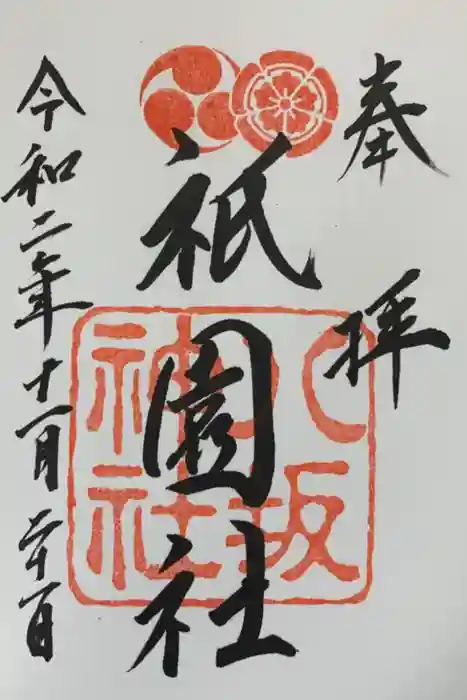 奉拝
祇園社
八坂神社
令和二年十一月二十二日